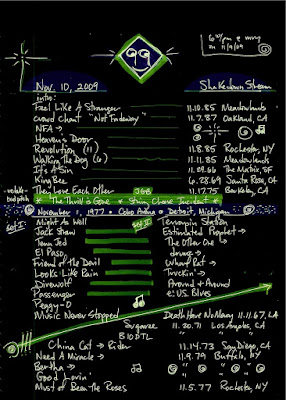 6 10/pm @ mvy
on 11/9/09
Nov. 10, 2009 Shakedown Stream
intro:
Feel Like A Stranger 11.10.85 Meadowlands
Crowd Chant "Not Fadeaway" 11.7.87 Oakland, CA
NFA →
Heaven's Door
Revolution (11) 11.8.85 Rochester, NY
Walking the Dog (6) 11.11.85 Meadowlands
It's A Sin 11.29.66 The Matrix, SF
King Bee 6.28.69 Santa Rosa, CA
They Love Each Other JGB 11.17.75 Berkeley, CA
* The Thrill is Gone * String Cheese Incident *
November 1, 1977 • Cobo Arena • Detroit, Michigan
Set I:
Might As Well
Jack Straw
Tenn Jed
El Paso
Friend of the Devil
Looks Like Rain
Direwolf
Passenger
Peggy-O
Music Never Stopped
Set II
Terrapin Station
Estimated Prophet →
The Other One
drums →
Wharf Rat →
Truckin' →
Around + Around
e: US Blues
Death Have No Mercy 11.11.67, LA
Sugaree 11.20.71 Los Angeles, CA
BIODTL " "
China Cat → Rider 11.14.73 San Diego, CA
Need A Miracle → 11.9.79 Buffalo, NY
Bertha → " "
Good Lovin' " "
Must of Been the Roses 11.5.77 Rochester, NY